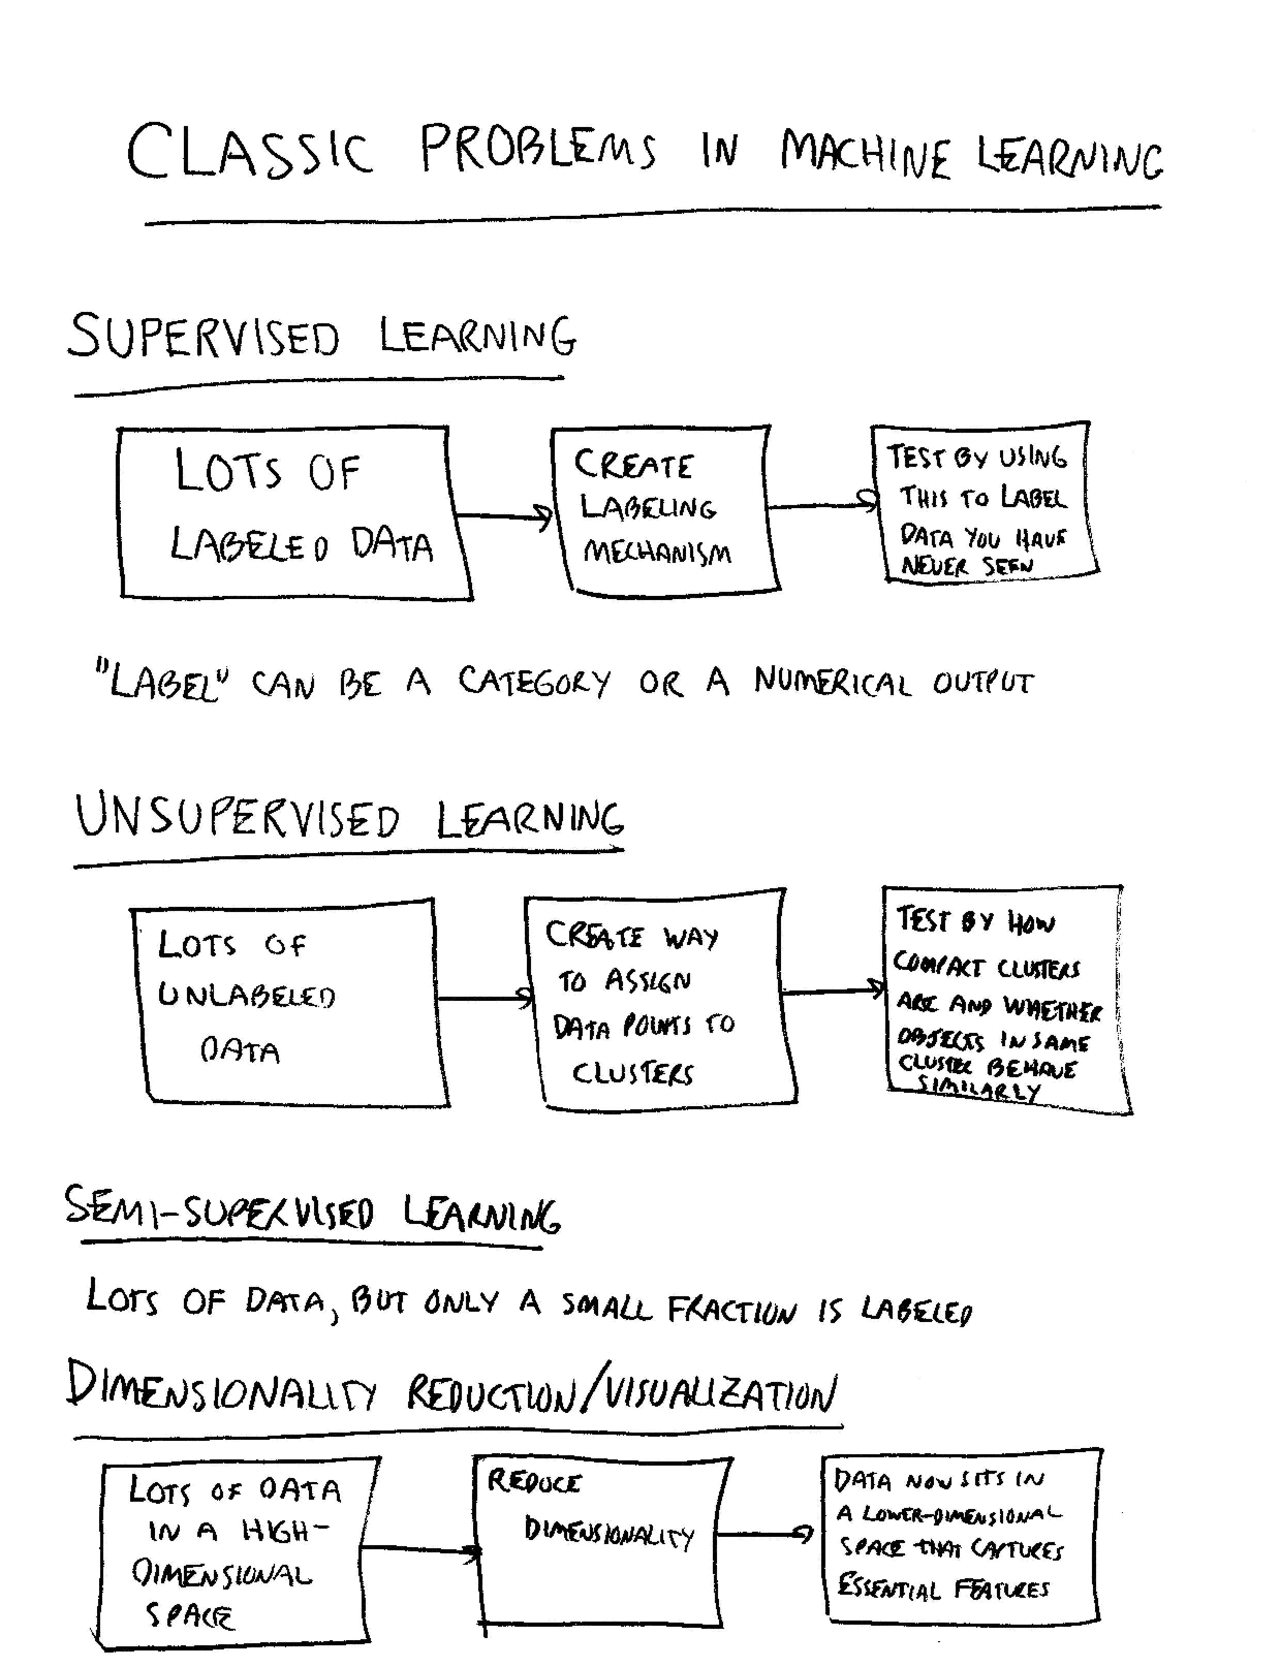 CLASSIC PROBLEMS IN MACHINE LEARNING
SUPERVISED LEARNING
LOTS OF
LABELED DATA
CREATE
LABELING
MECHANISM
TEST BY USING
THIS TO LABEL
DATA YOU HAVE
NEVER SEEN
"LABEL" CAN BE A CATEGORY OR A NUMERICAL OUTPUT
UNSUPERVISED LEARNING
LOTS OF
UNLABELED
DATA
CREATE WAY
TO ASSIGN
DATA POINTS TO
CLUSTERS
TEST BY HOW
COMPACT CLUSTERS
ARE AND WHETHER
OBJECTS IN SAME
CLUSTER BEHAVE
SIMILARLY
SEMI-SUPERVISED LEARNING
LOTS OF DATA, BUT ONLY A SMALL FRACTION IS LABELED
DIMENSIONALITY REDUCTION/VISUALIZATION
LOTS OF DATA
IN A HIGH-
DIMENSIONAL
SPACE
REDUCE
DIMENSIONALITY
DATA NOW SITS IN
A LOWER-DIMENSIONAL
SPACE THAT CAPTURES
ESSENTIAL FEATURES